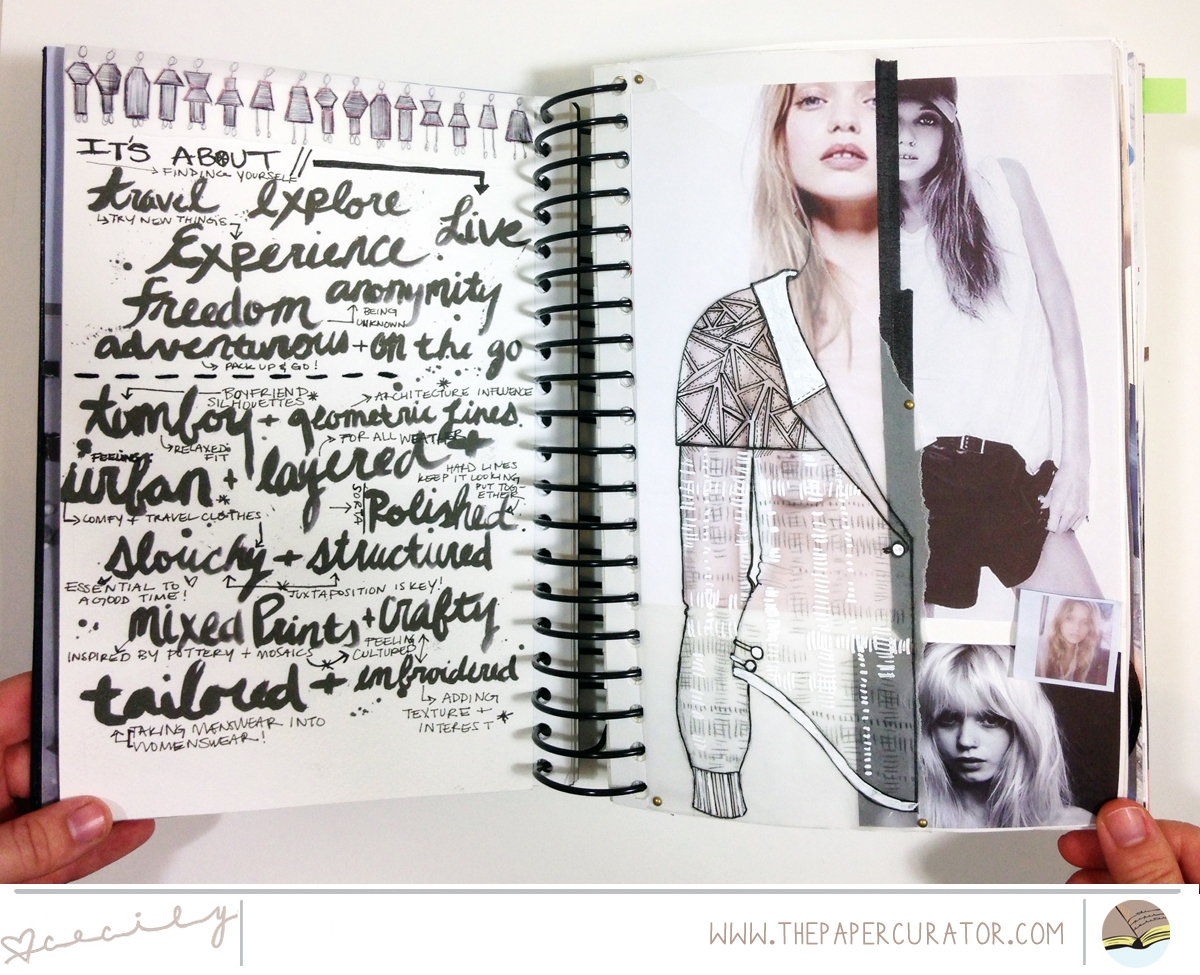 IT'S ABOUT //
FINDING YOURSELF
travel explore
TRY NEW THINGS
Live,
Experience
freedom anonymity
BEING
UNKNOWN
adventurous + on the go
PACK UP & GO!
BOYFRIEND
SILHOUETTES*
ARCHITECTURE INFLUENCE
tomboy + geometric lines.
RELAXED
FIT
FOR ALL WEATHER
FEELING:
urban + layered +
HARD LINES
KEEP IT LOOKING
PUT TOG-
ETHER
SORTA
Polished
COMFY + TRAVEL CLOTHES
Slouchy + structured
ESSENTIAL TO
A GOOD TIME!
JUXTAPOSITION IS KEY!
mixed Prints + Crafty
INSPIRED BY POTTERY + MOSAICS
FEELING
CULTURED
tailored + embroidered
ADDING
TEXTURE +
INTEREST
TAKING MENSWEAR INTO
WOMENSWEAR!
cecily
WWW.THEPAPERCURATOR.COM